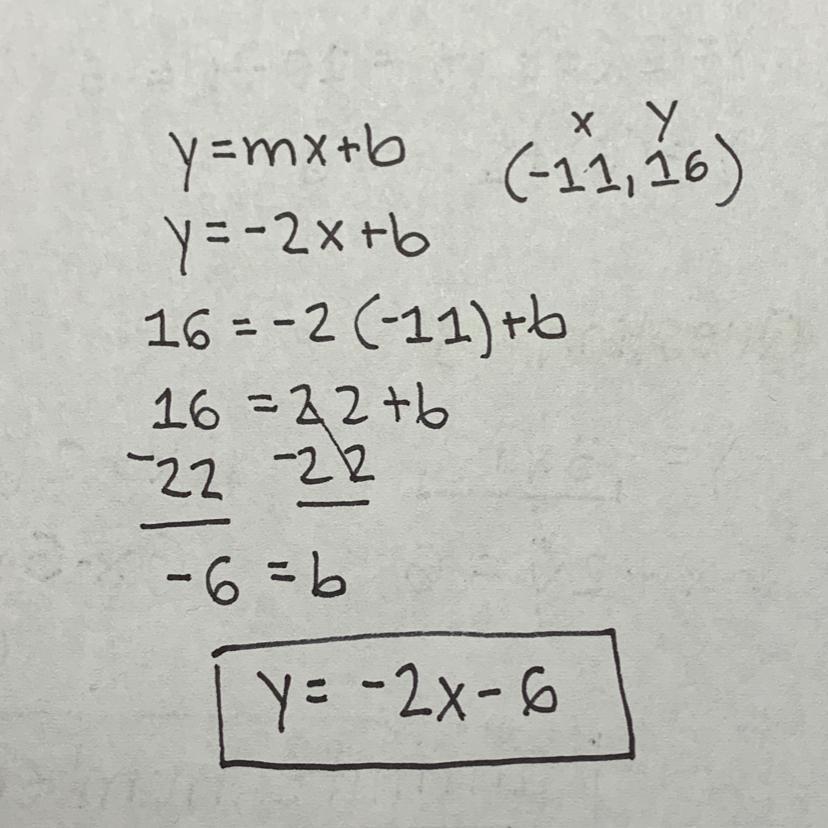 x y
y=mx+b (-11, 16)
y=-2x+b
16 = -2(-11)+b
16 = 22+b
-22 -22
-6 = b
y= -2x-6